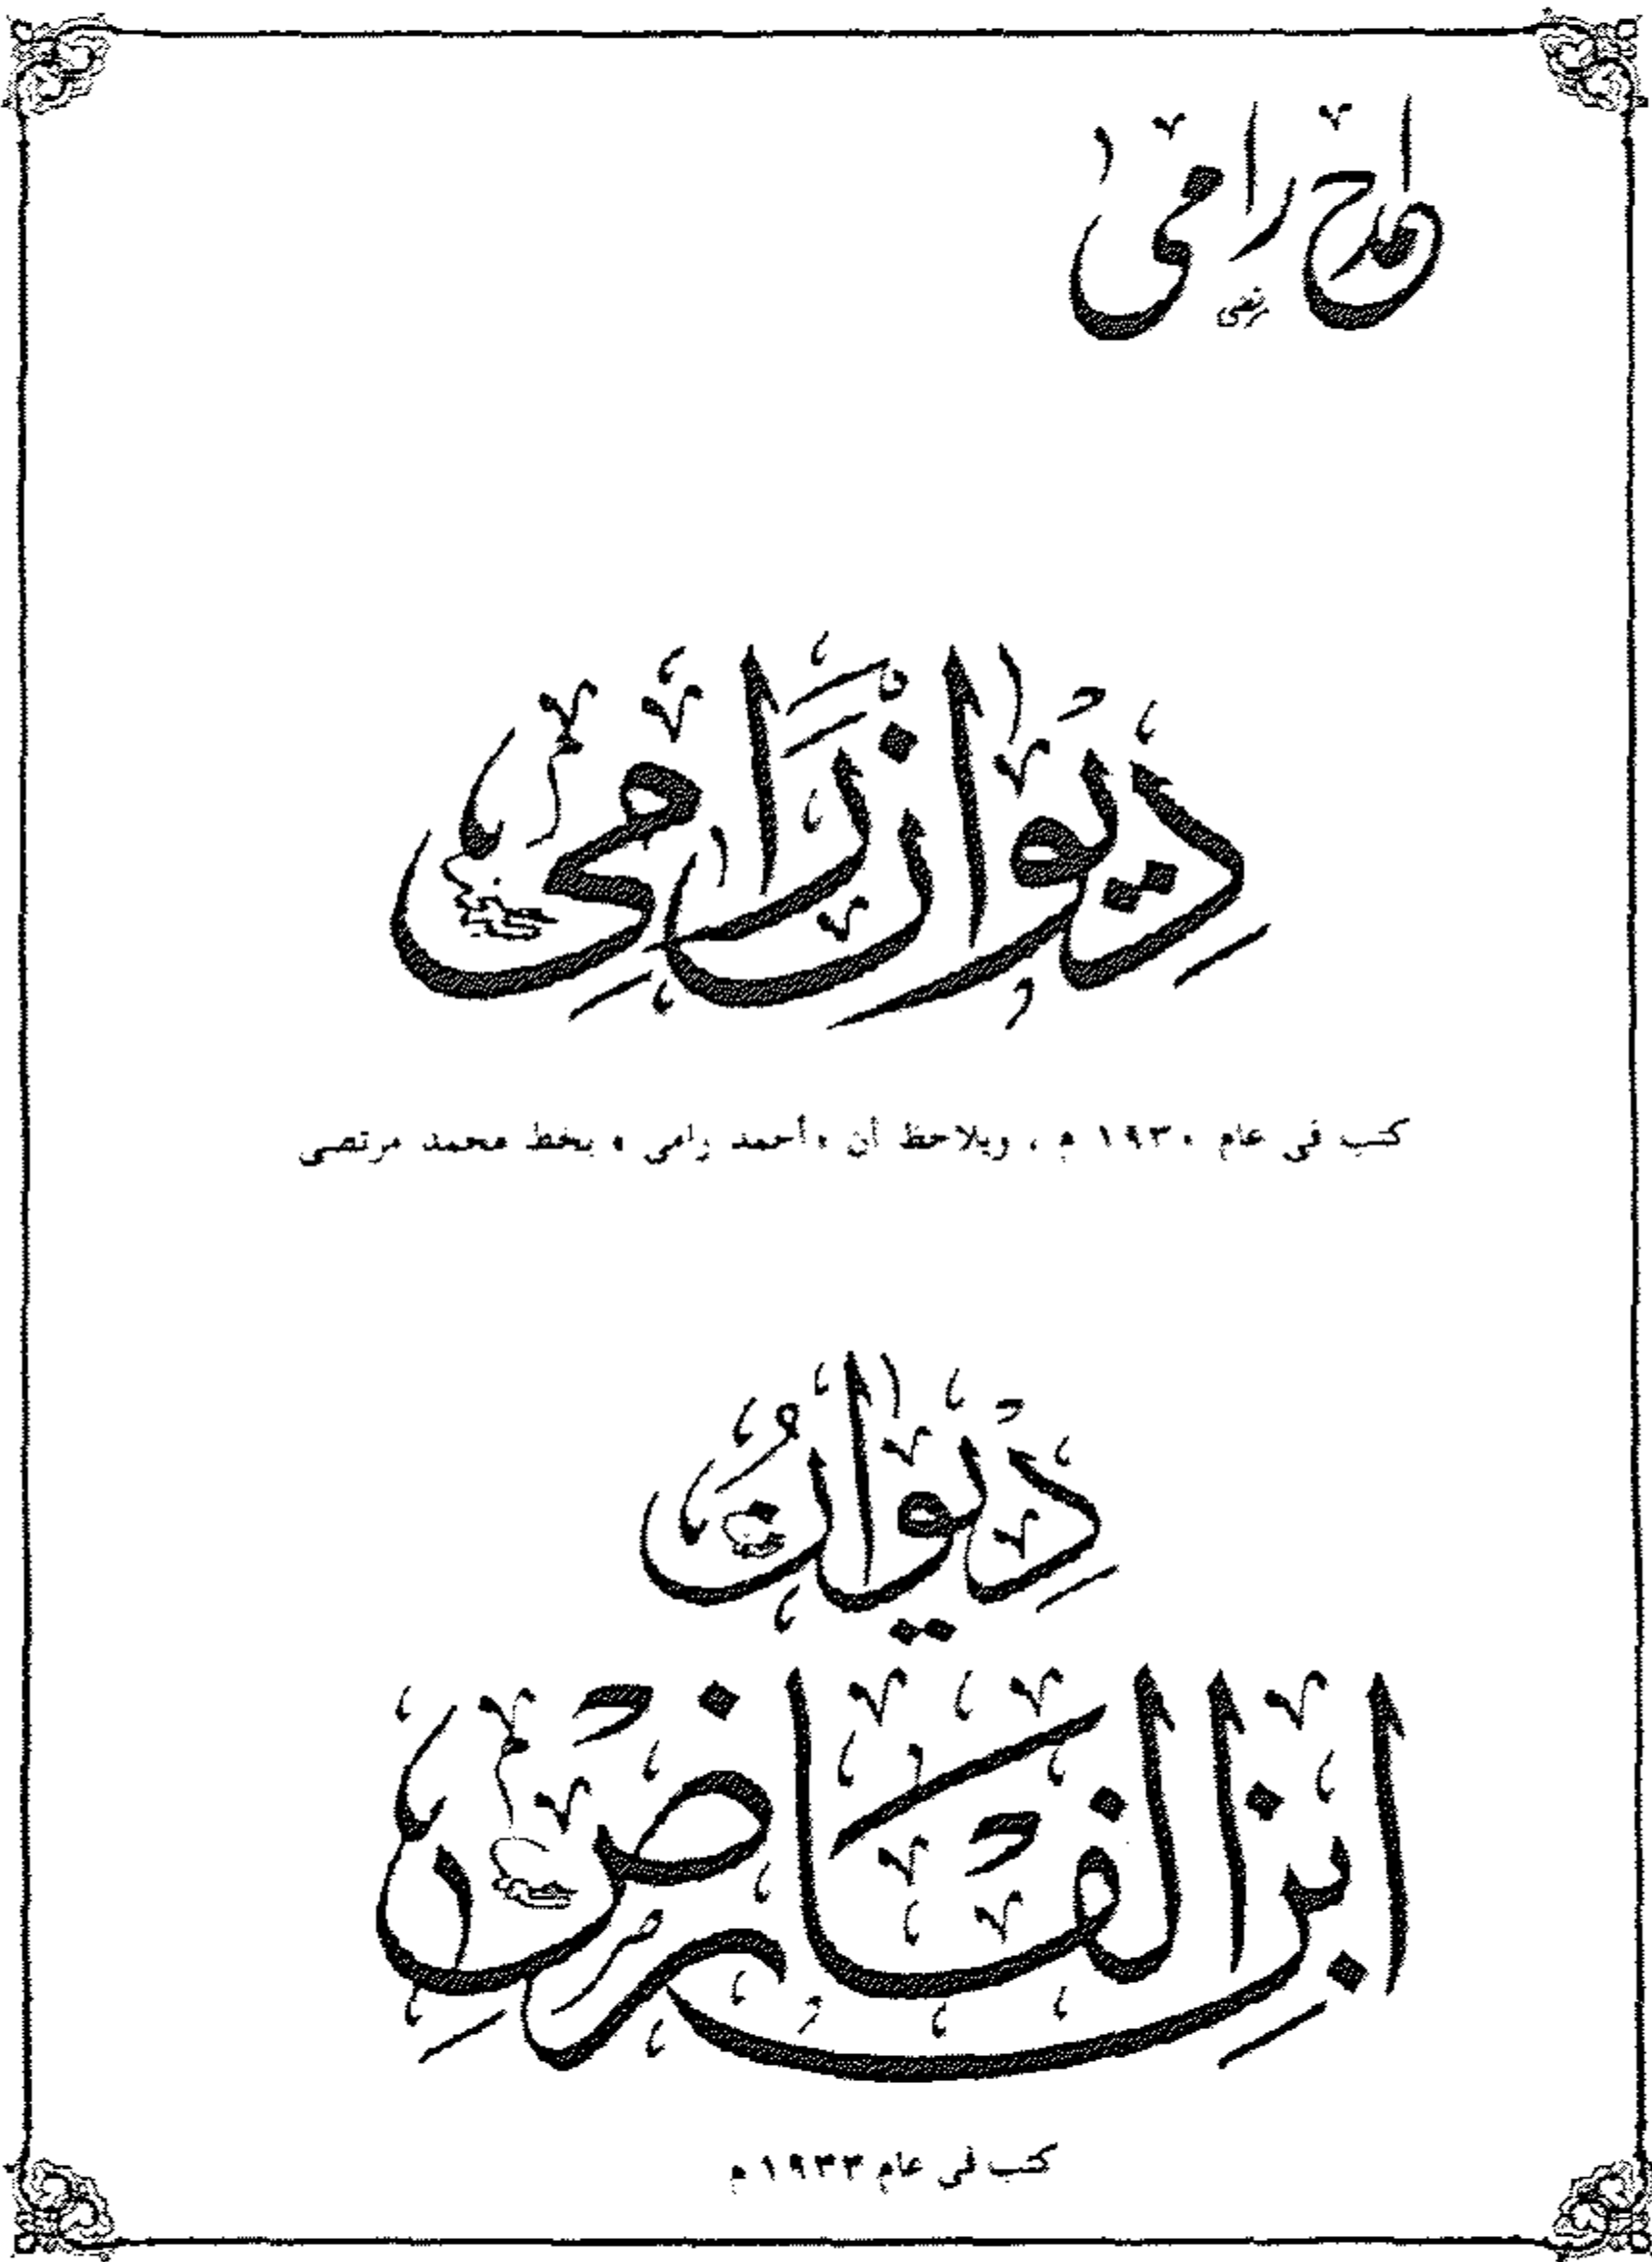 احمد رامى
مرتضى
دِيوَان رَامِى
كتب فى عام ١٩٣٠ م ، ويلاحظ أن «أحمد رامى» بخط محمد مرتضى
دِيوَانُ
ابن الفَارِضِ
كتب فى عام ١٩٣٣ م